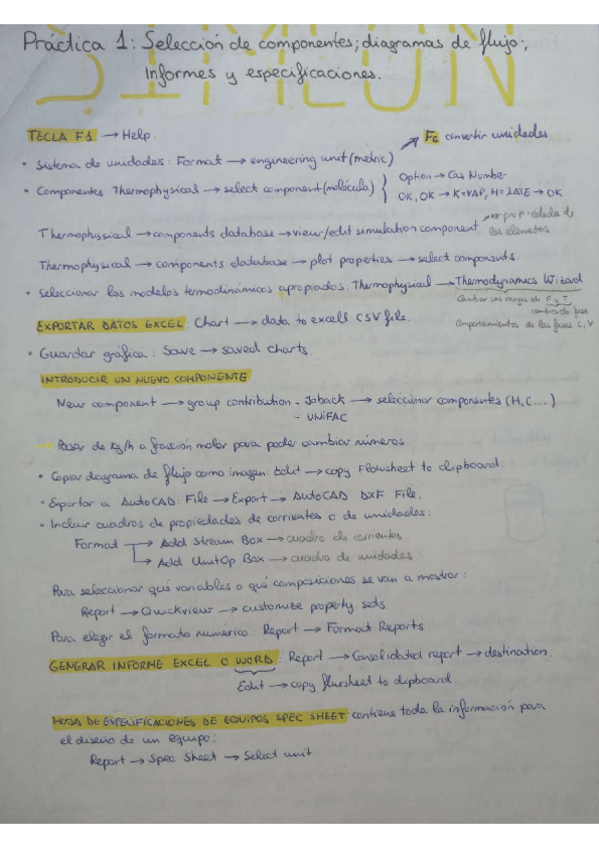 SIMCON
Práctica 1: Selección de componentes; diagramas de flujo;
Informes y especificaciones.
TECLA F1 → Help.
F6 convertir unidades
• Sistema de unidades: Format → engineering unit (metric)
• Componentes Thermophysical → select component (molécula)
Option → Cas Number
OK, OK → K=VAP, H=LATE → OK
Thermophyssical → components database → view/edit simulation component
ver propiedades de
los elementos
Thermophysical → components database → plot properties → select components.
• Seleccionar los modelos termodinámicos apropiados. Thermophysical → Thermodynamics Wizard
Cambiar los rangos de P y T
cambio de fase
Comportamientos de las fases L, V
EXPORTAR DATOS EXCEL: Chart → data to excell CSV file.
• Guardar gráfica: Save → saved charts.
INTRODUCIR UN NUEVO COMPONENTE
New component → group contribution - Joback → seleccionar componentes (H, C...)
- UNIFAC
→ Pasar de kg/h a fracción molar para poder cambiar números
• Copiar diagrama de flujo como imagen: Edit → copy Flowsheet to clipboard.
• Exportar a AutoCAD: File → Export → AutoCAD DXF File.
• Incluir cuadros de propiedades de corrientes o de unidades:
Format → Add Stream Box → cuadro de corrientes
→ Add UnitOp Box → cuadro de unidades.
Para seleccionar qué variables o qué composiciones se van a mostrar:
Report → Quickview → customize property sets.
Para elegir el formato numérico: Report → Format Reports.
GENERAR INFORME EXCEL O WORD: Report → Consolidated report → destination.
Edit → copy flursheet to clipboard.
HOJA DE ESPECIFICACIONES DE EQUIPOS SPEC SHEET contiene toda la información para
el diseño de un equipo:
Report → Spec Sheet → Select unit